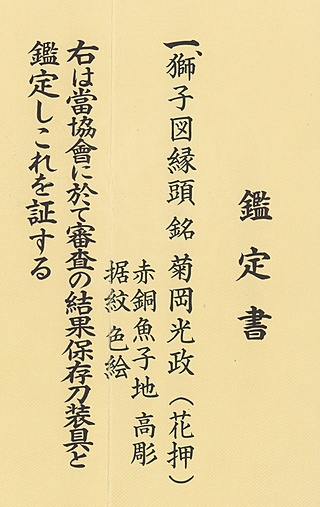 鑑定書
一、獅子図縁頭 銘 菊岡光政（花押）
赤銅魚子地 高彫
据紋 色絵
右は當協會に於て審査の結果保存刀装具と
鑑定しこれを証する